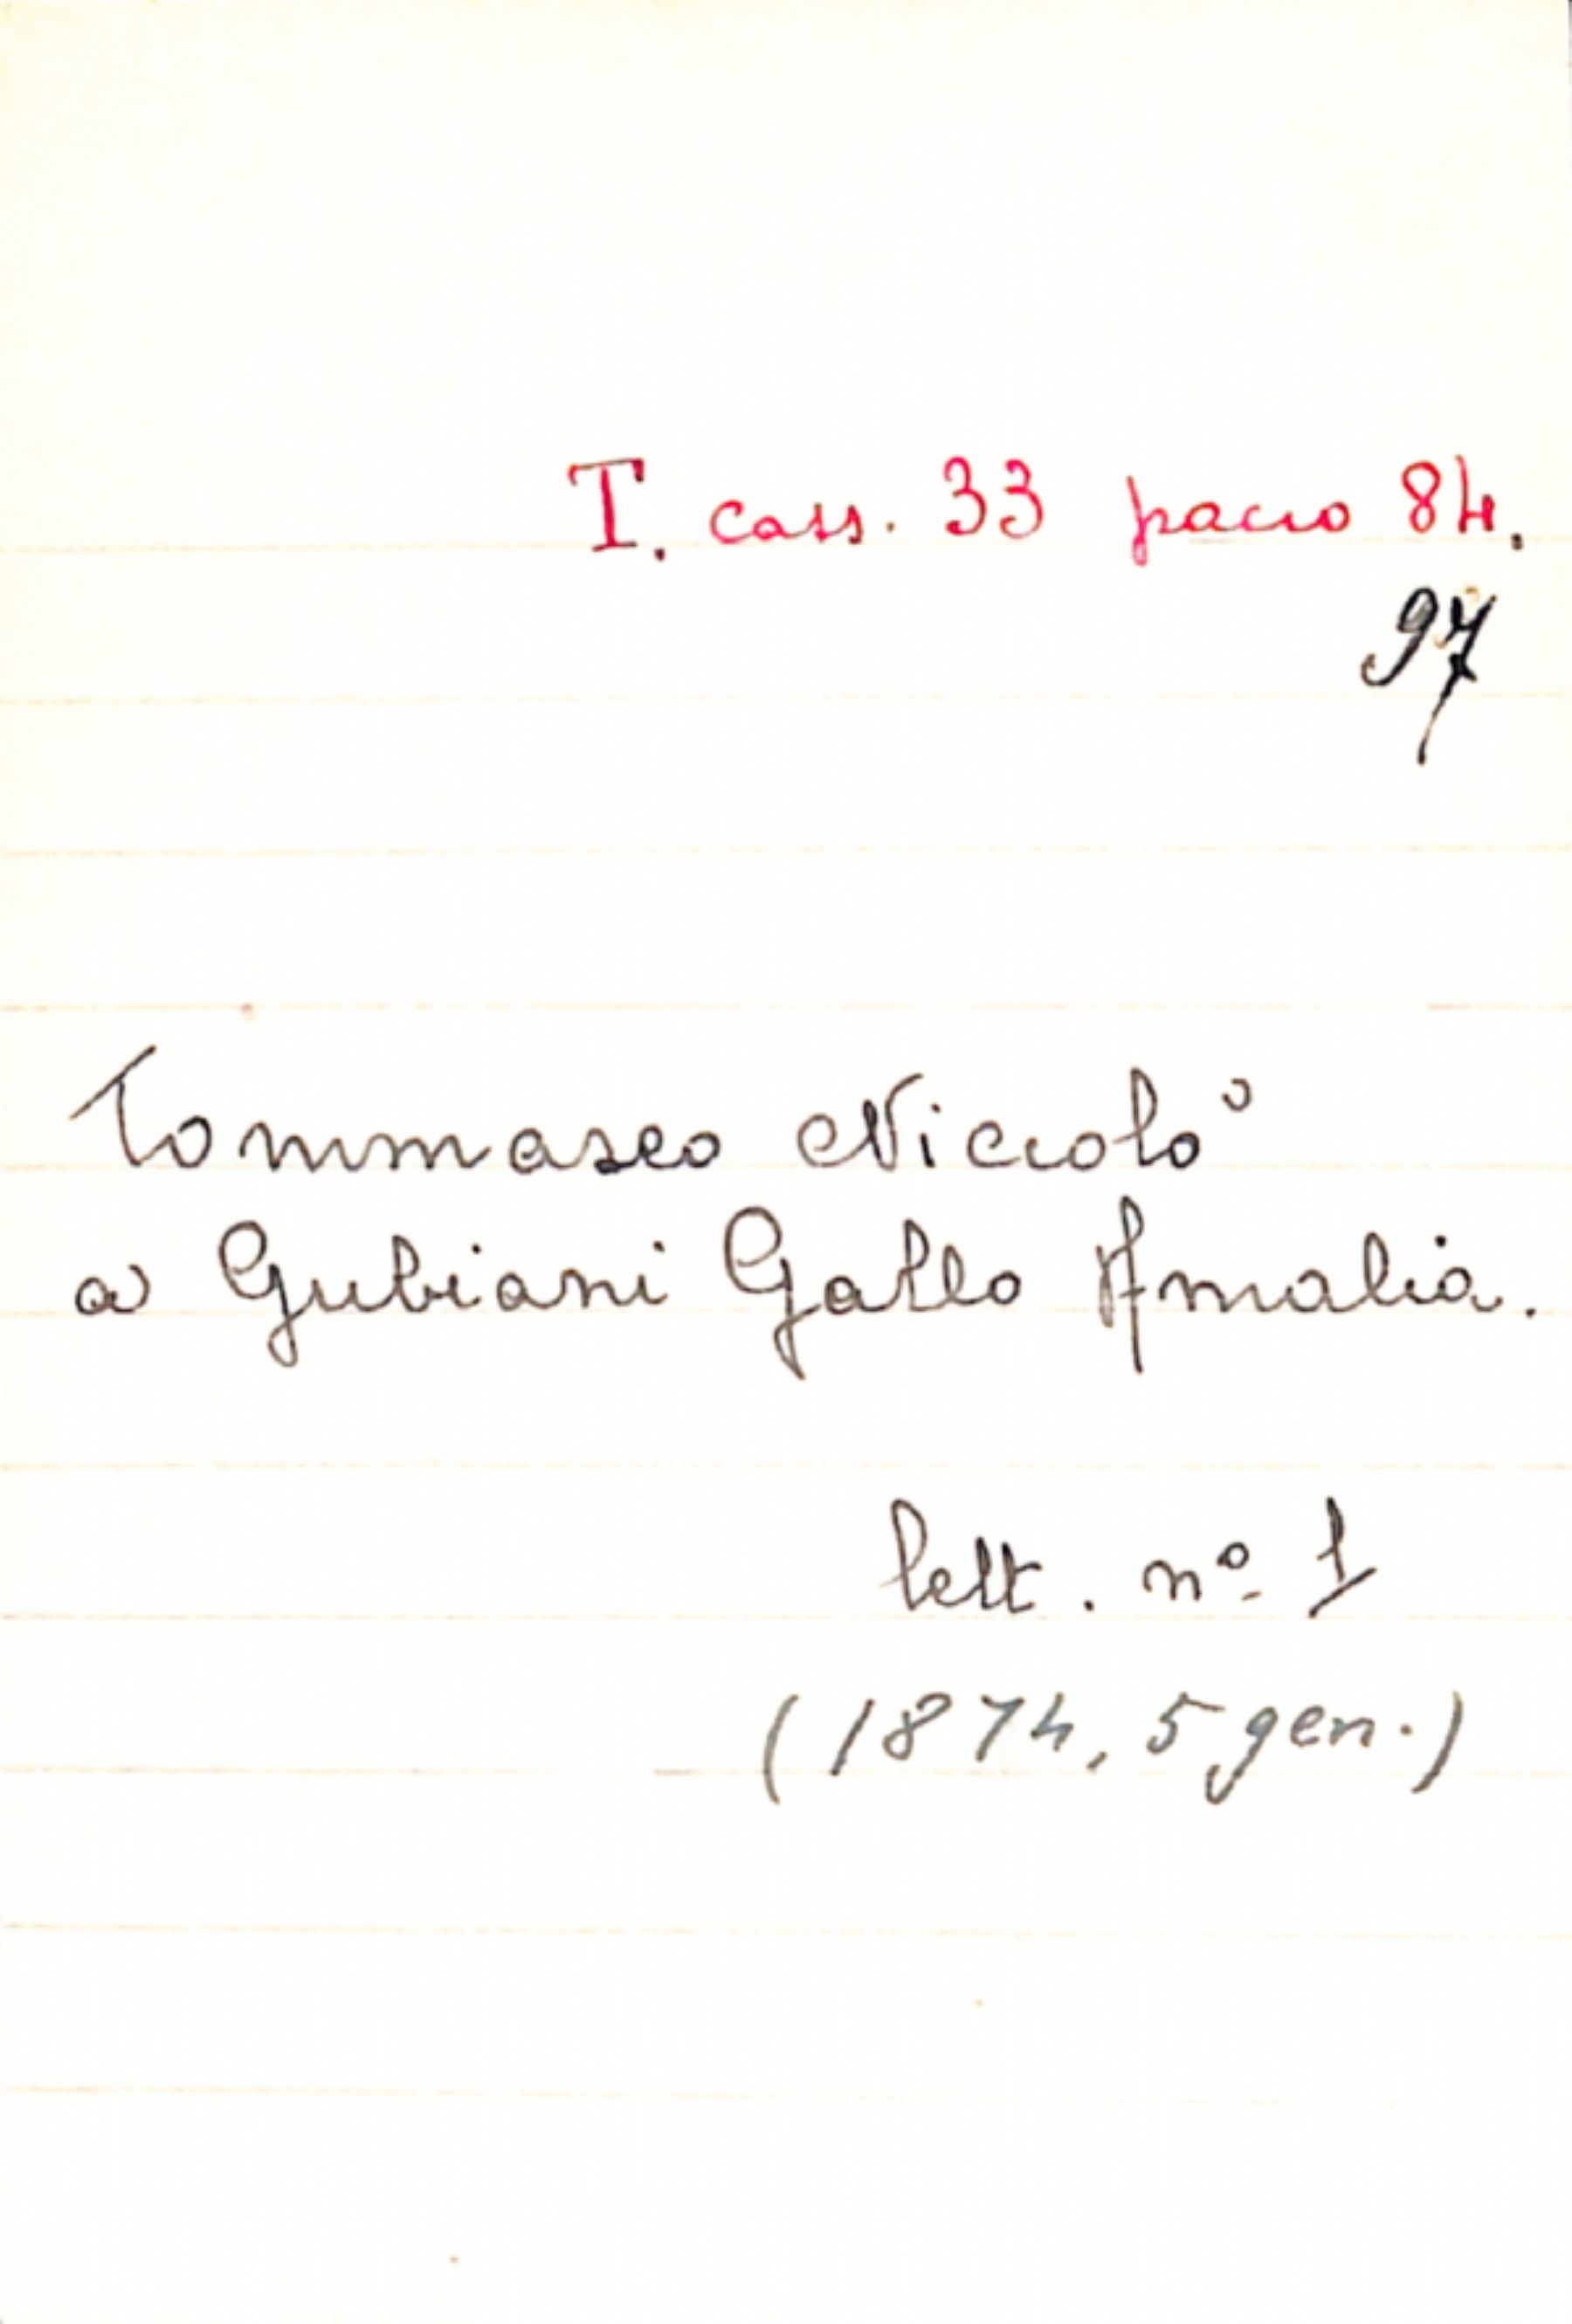 T. cass. 33 pacco 84.
97
Tommaseo Niccolò
a Gubiani Gallo Amalia.
lett. nº 1
(1874, 5 gen.)